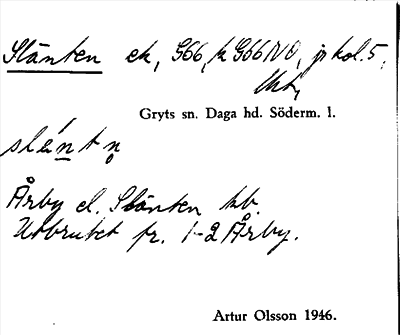 Slänten ek, G66, k G66NO, jp kol. 5,
Gryts sn. Daga hd. Söderm. l.
slä́ntn̥
Årby el. Slänten kb.
Utbrutet fr. 1-2 Årby.
Artur Olsson 1946.